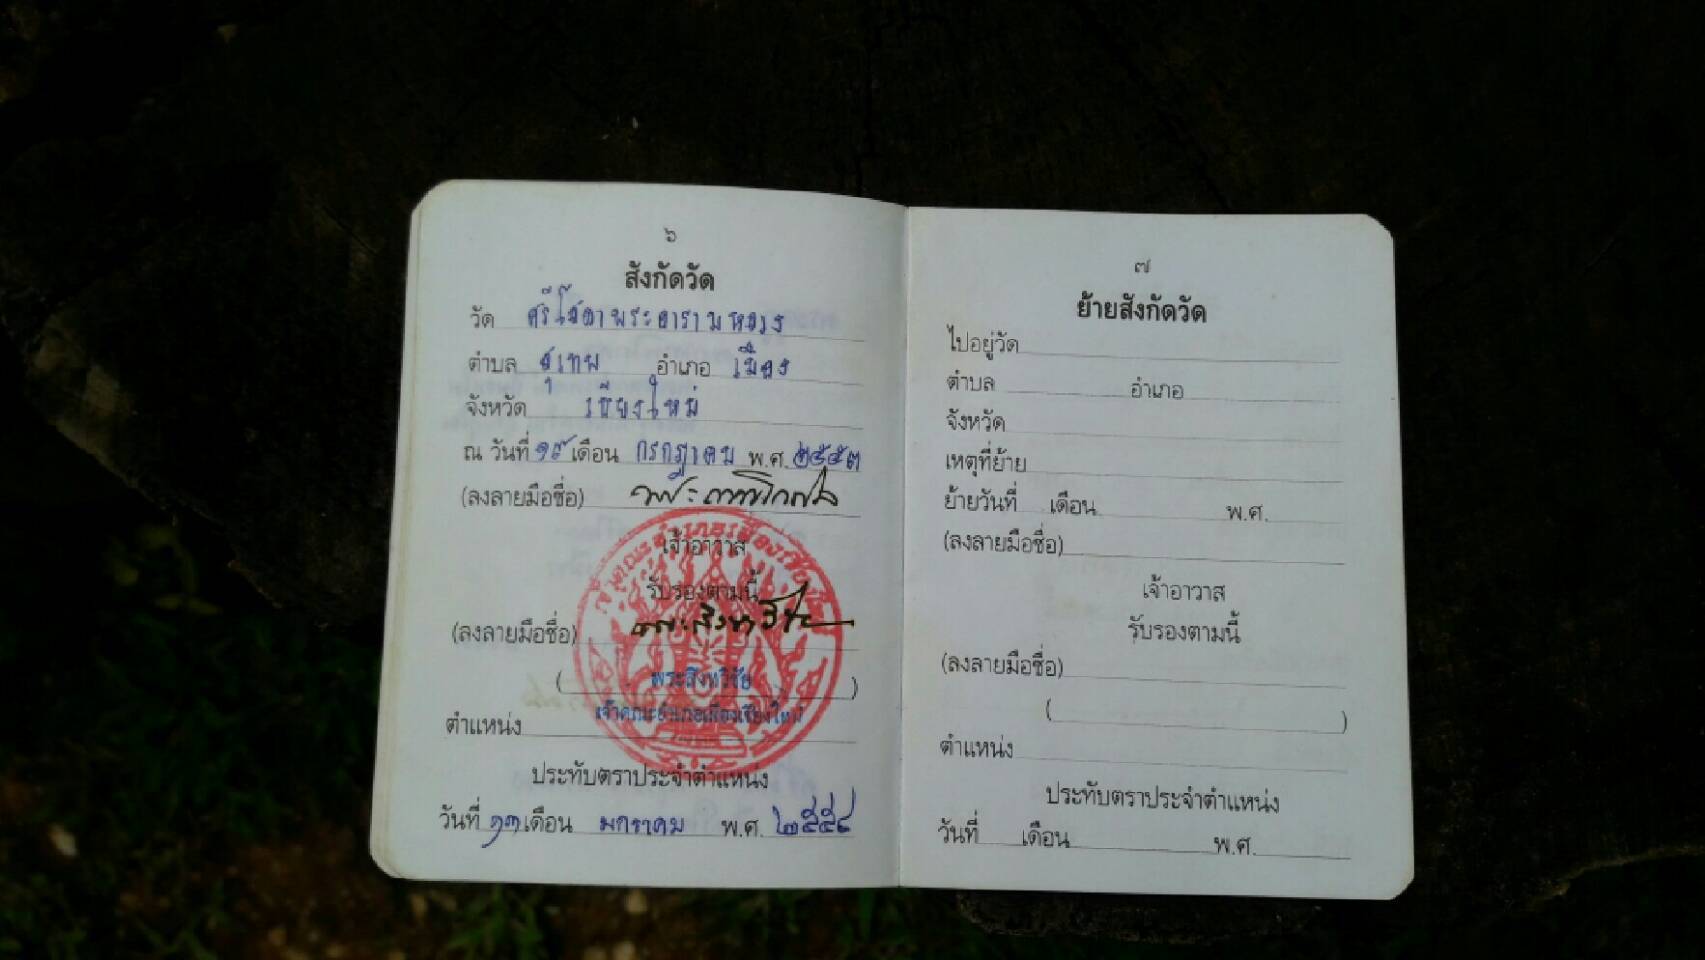 ๖
สังกัดวัด
วัด ศรีโสดาพระอารามหลวง
ตำบล สุเทพ อำเภอ เมือง
จังหวัด เชียงใหม่
ณ วันที่ ๑๙ เดือน กรกฎาคม พ.ศ. ๒๕๕๓
(ลงลายมือชื่อ)
เจ้าอาวาส
รับรองตามนี้
(ลงลายมือชื่อ) พระสิงหวิชัย
( พระสิงหวิชัย )
เจ้าคณะอำเภอเมืองเชียงใหม่
ตำแหน่ง
ประทับตราประจำตำแหน่ง
วันที่ ๑๓ เดือน มกราคม พ.ศ. ๒๕๕๔
เจ้าคณะอำเภอเมืองเชียงใหม่
๗
ย้ายสังกัดวัด
ไปอยู่วัด
ตำบล อำเภอ
จังหวัด
เหตุที่ย้าย
ย้ายวันที่ เดือน พ.ศ.
(ลงลายมือชื่อ)
เจ้าอาวาส
รับรองตามนี้
(ลงลายมือชื่อ)
( )
ตำแหน่ง
ประทับตราประจำตำแหน่ง
วันที่ เดือน พ.ศ.